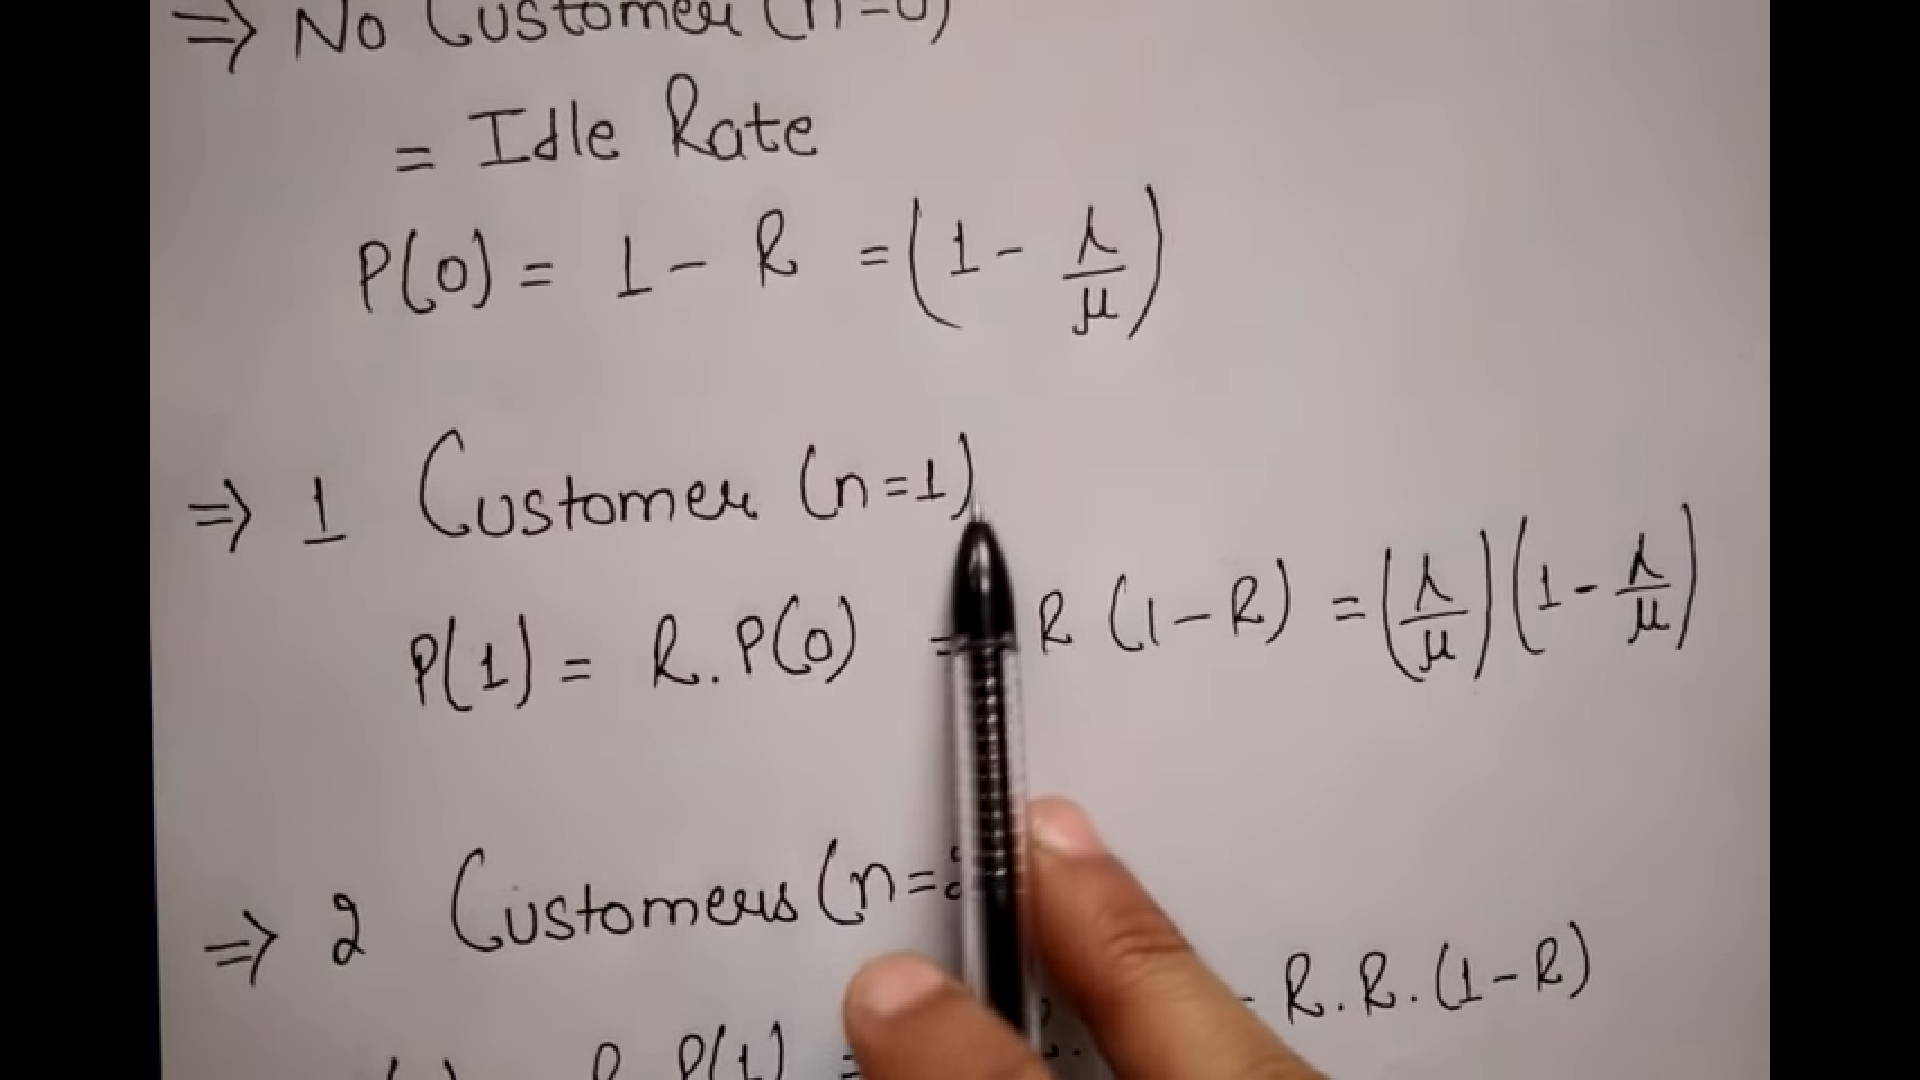 ⇒ No Customer (n=0)
= Idle Rate
P(0) = 1 - R = (1 - λ/μ)
⇒ 1 Customer (n=1)
P(1) = R. P(0) = R (1-R) = (λ/μ)(1 - λ/μ)
⇒ 2 Customers (n=2
R. P(1) = R. R. (1-R)